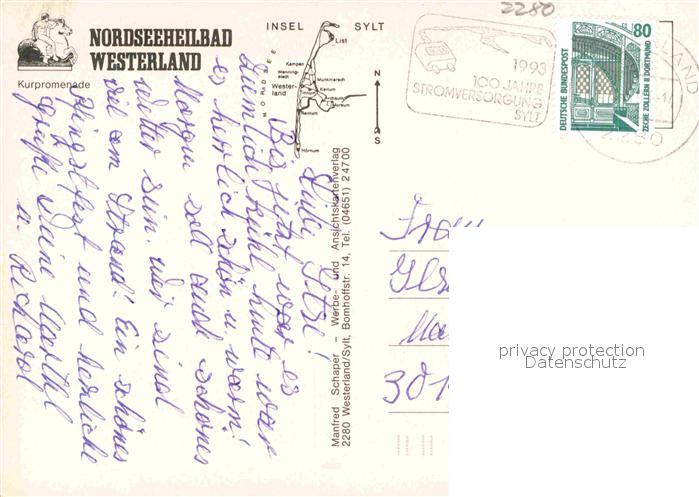 2280
NORDSEEHEILBAD
WESTERLAND
Kurpromenade
INSEL SYLT
List
Kampen
Munkmarsch
Keitum
Rantum
Hörnum
NORDSEE
N
S
1993
100 JAHRE
STROMVERSORGUNG
SYLT
DEUTSCHE BUNDESPOST
80
ZECHE ZOLLERN II DORTMUND
Liebe Ilse!
Bis jetzt war es
ziemlich kühl heute war
es herrlich schön u. warm!
Morgen soll auch schönes
Wetter sein. Wir sind
viel am Strand! Ein schönes
Pfingstfest und herzliche
Grüße Deine Marthel
u. Richard
Manfred Schaper – Werbe- und Ansichtskartenverlag
2280 Westerland/Sylt, Bomhoffstr. 14, Tel. (04651) 2 47 00
Frau
301
privacy protection
Datenschutz